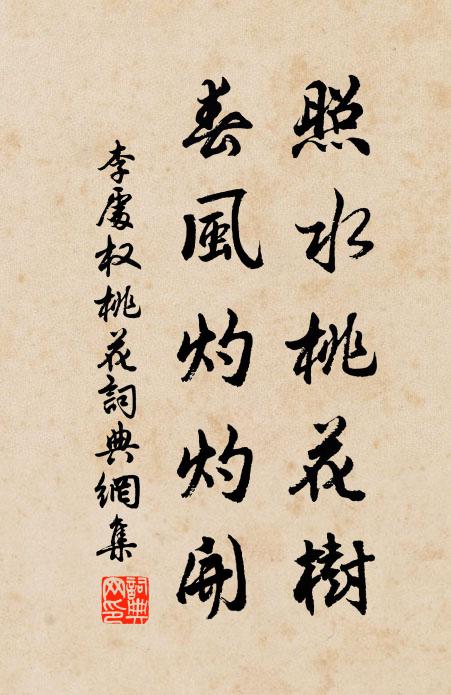 照水桃花樹
春風灼灼開
李處权桃花詞典網集
詞典
网印